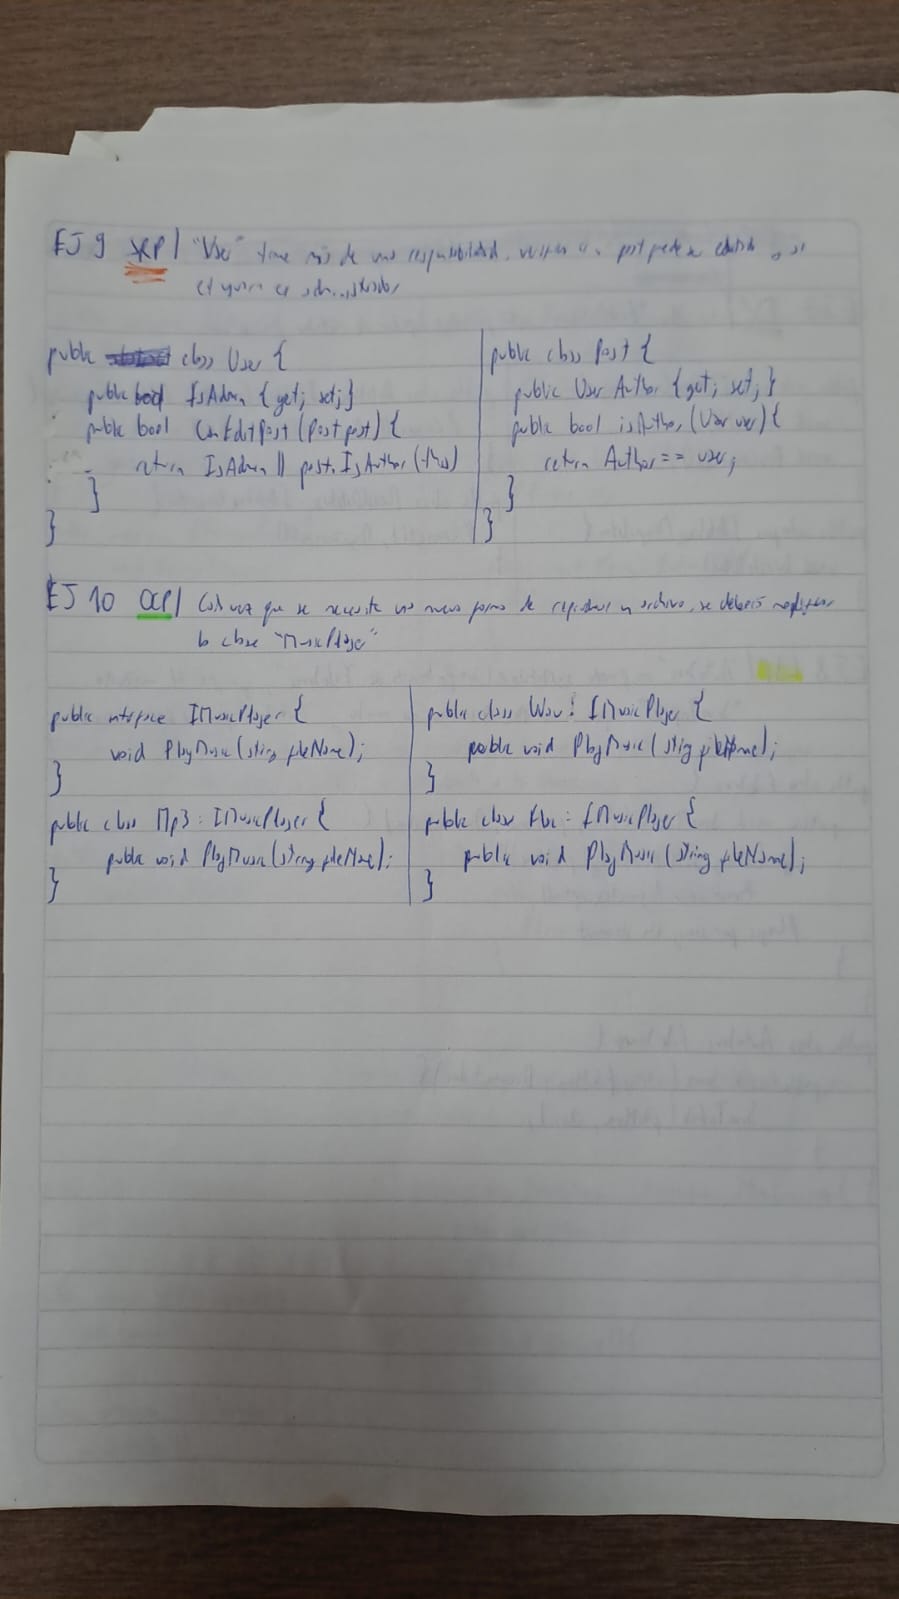 EJ 9 SRP | "User" tiene más de una responsabilidad, verificar si un post puede ser editado o si
el usuario es administrador
public class User {
public bool IsAdmin {get; set;}
public bool CanEditPost (Post post) {
return IsAdmin || post.IsAuthor (this)
}
}
public class Post {
public User Author {get; set;}
public bool isAuthor (User user) {
return Author == user;
}
}
EJ 10 OCP | Cada vez que se necesite una nueva forma de reproducir un archivo, se deberá modificar
la clase "MusicPlayer"
public interface IMusicPlayer {
void PlayMusic (string fileName);
}
public class Mp3 : IMusicPlayer {
public void PlayMusic (string fileName);
}
public class Wav : IMusicPlayer {
public void PlayMusic (string fileName);
}
public class Flac : IMusicPlayer {
public void PlayMusic (string fileName);
}